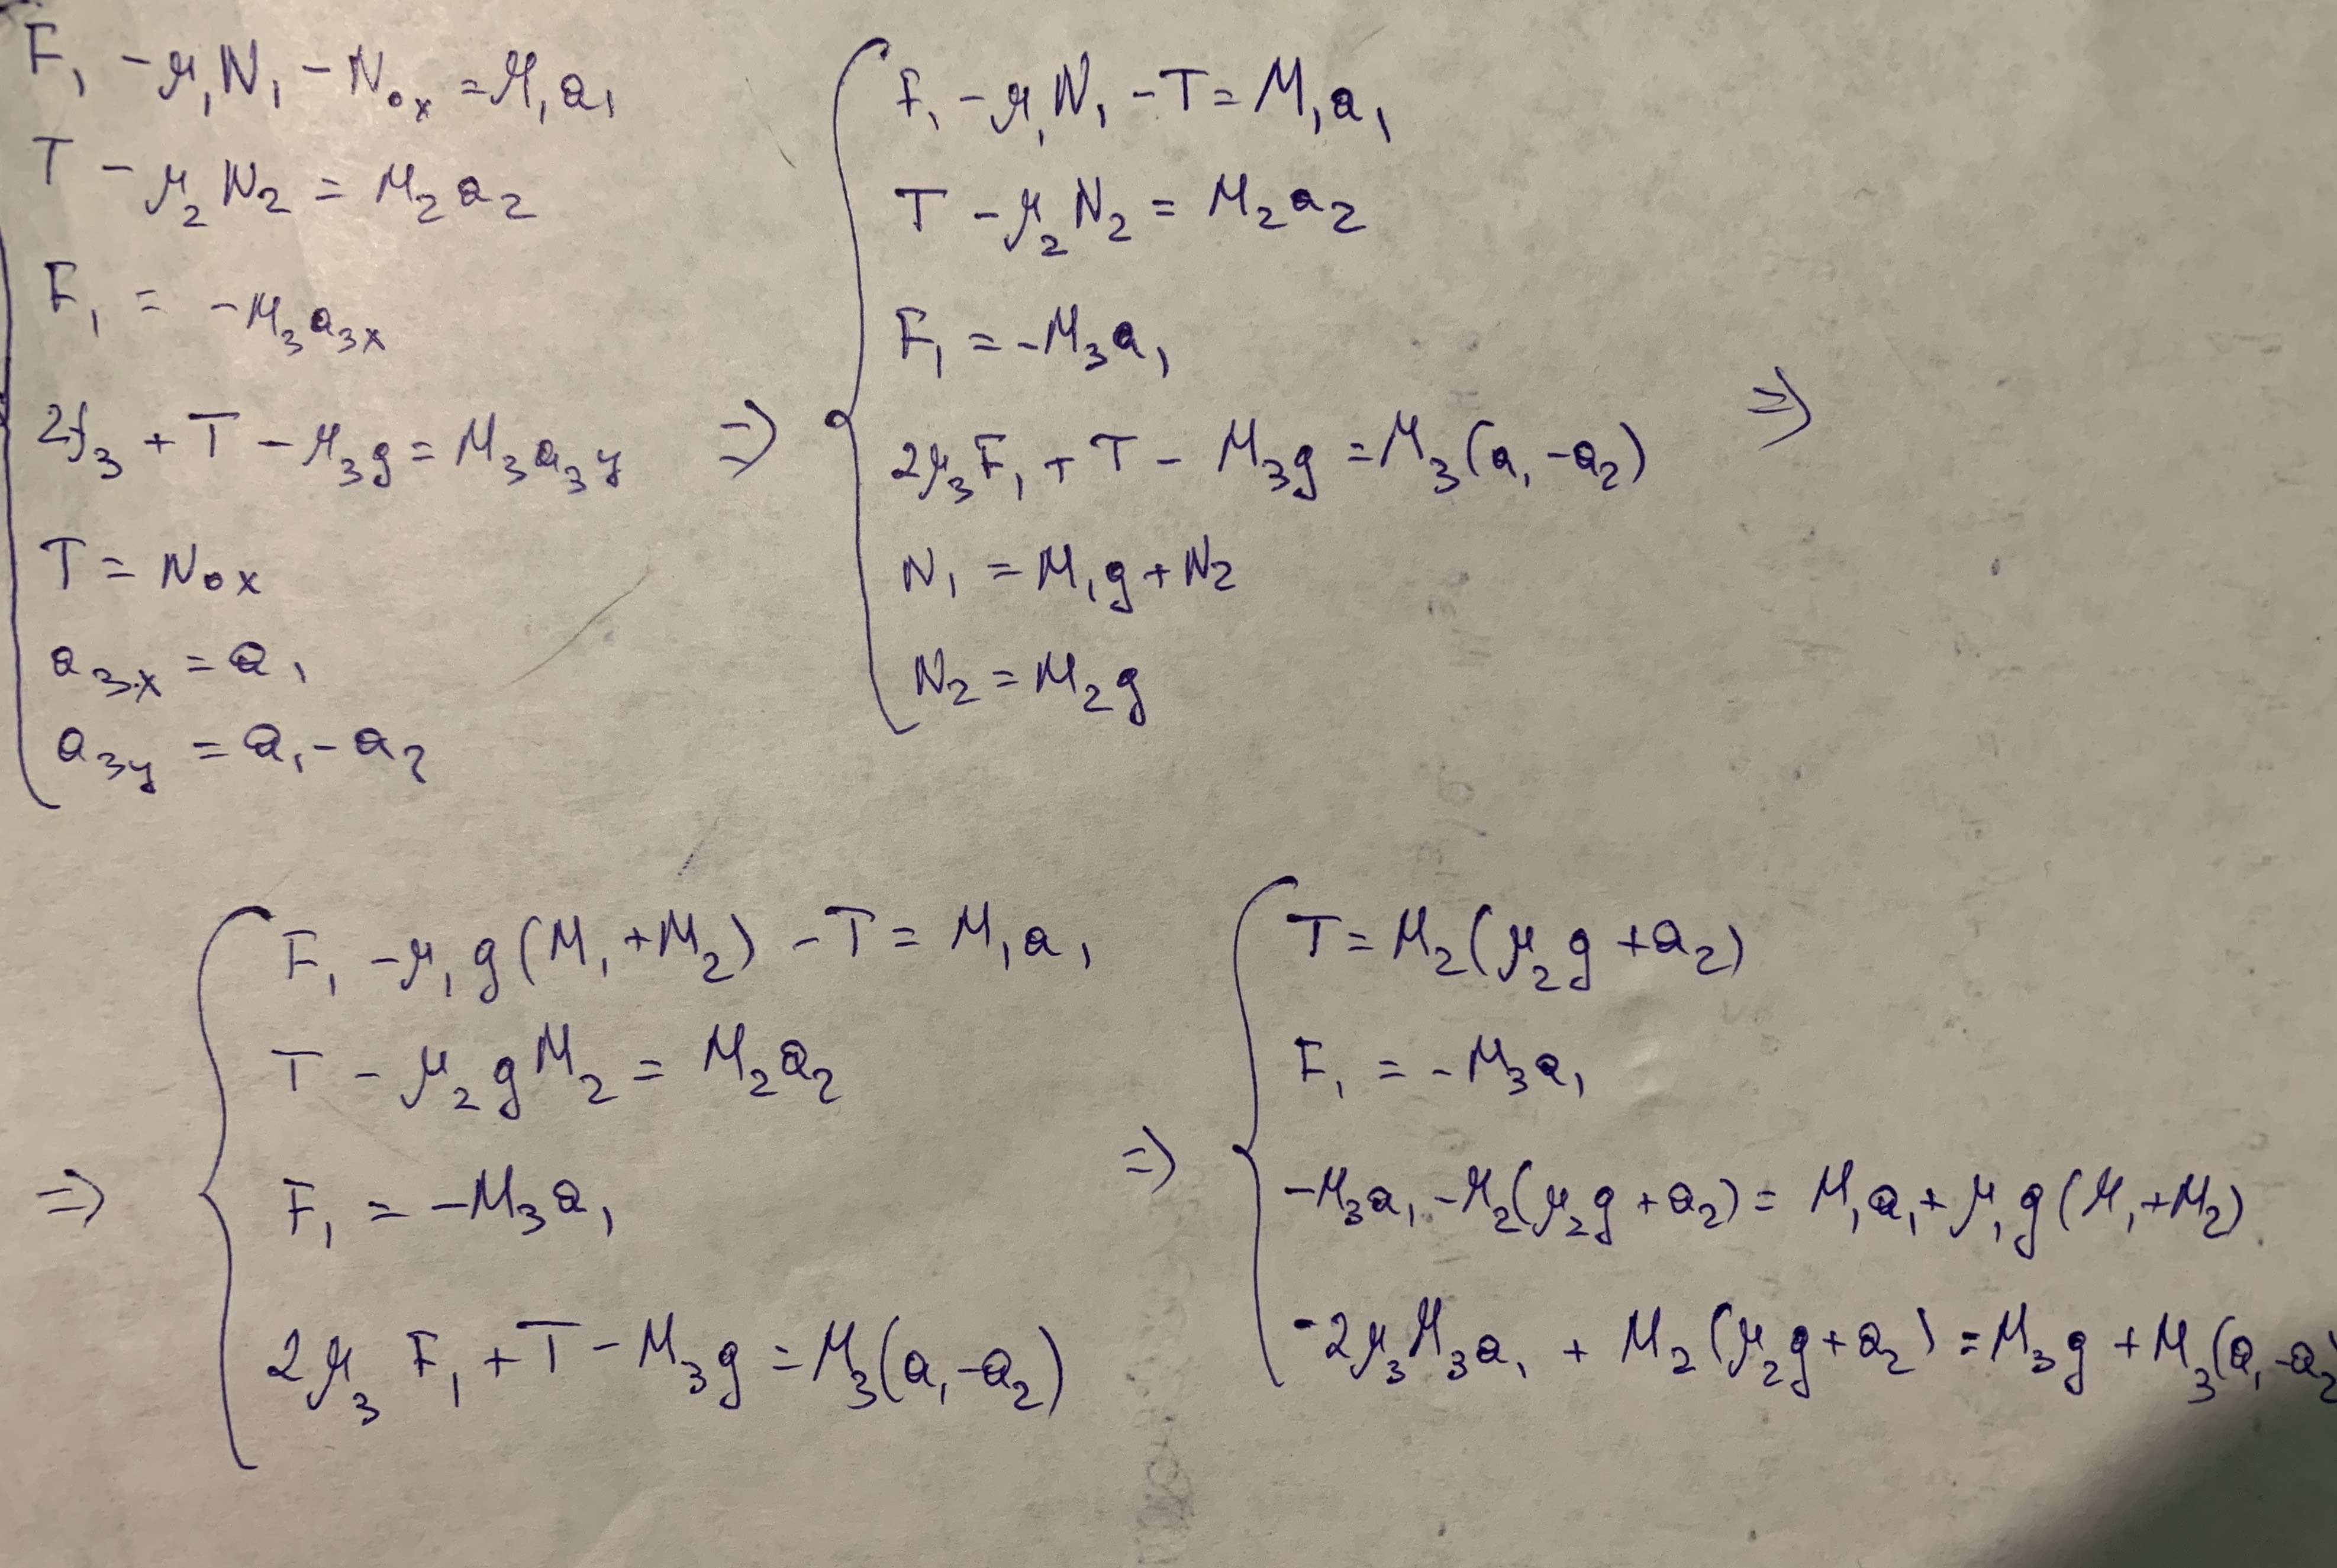 F₁ - μ₁N₁ - N₀ₓ = M₁a₁
T - μ₂N₂ = M₂a₂
F₁ = -M₃a₃ₓ
2f₃ + T - M₃g = M₃a₃y
T = N₀ₓ
a₃ₓ = a₁
a₃y = a₁ - a₂
⇒
F₁ - μ₁N₁ - T = M₁a₁
T - μ₂N₂ = M₂a₂
F₁ = -M₃a₁
2μ₃F₁ + T - M₃g = M₃(a₁ - a₂)
N₁ = M₁g + N₂
N₂ = M₂g
⇒
⇒
F₁ - μ₁g(M₁ + M₂) - T = M₁a₁
T - μ₂gM₂ = M₂a₂
F₁ = -M₃a₁
2μ₃F₁ + T - M₃g = M₃(a₁ - a₂)
⇒
T = M₂(μ₂g + a₂)
F₁ = -M₃a₁
-M₃a₁ - M₂(μ₂g + a₂) = M₁a₁ + μ₁g(M₁ + M₂)
-2μ₃M₃a₁ + M₂(μ₂g + a₂) = M₃g + M₃(a₁ - a₂)